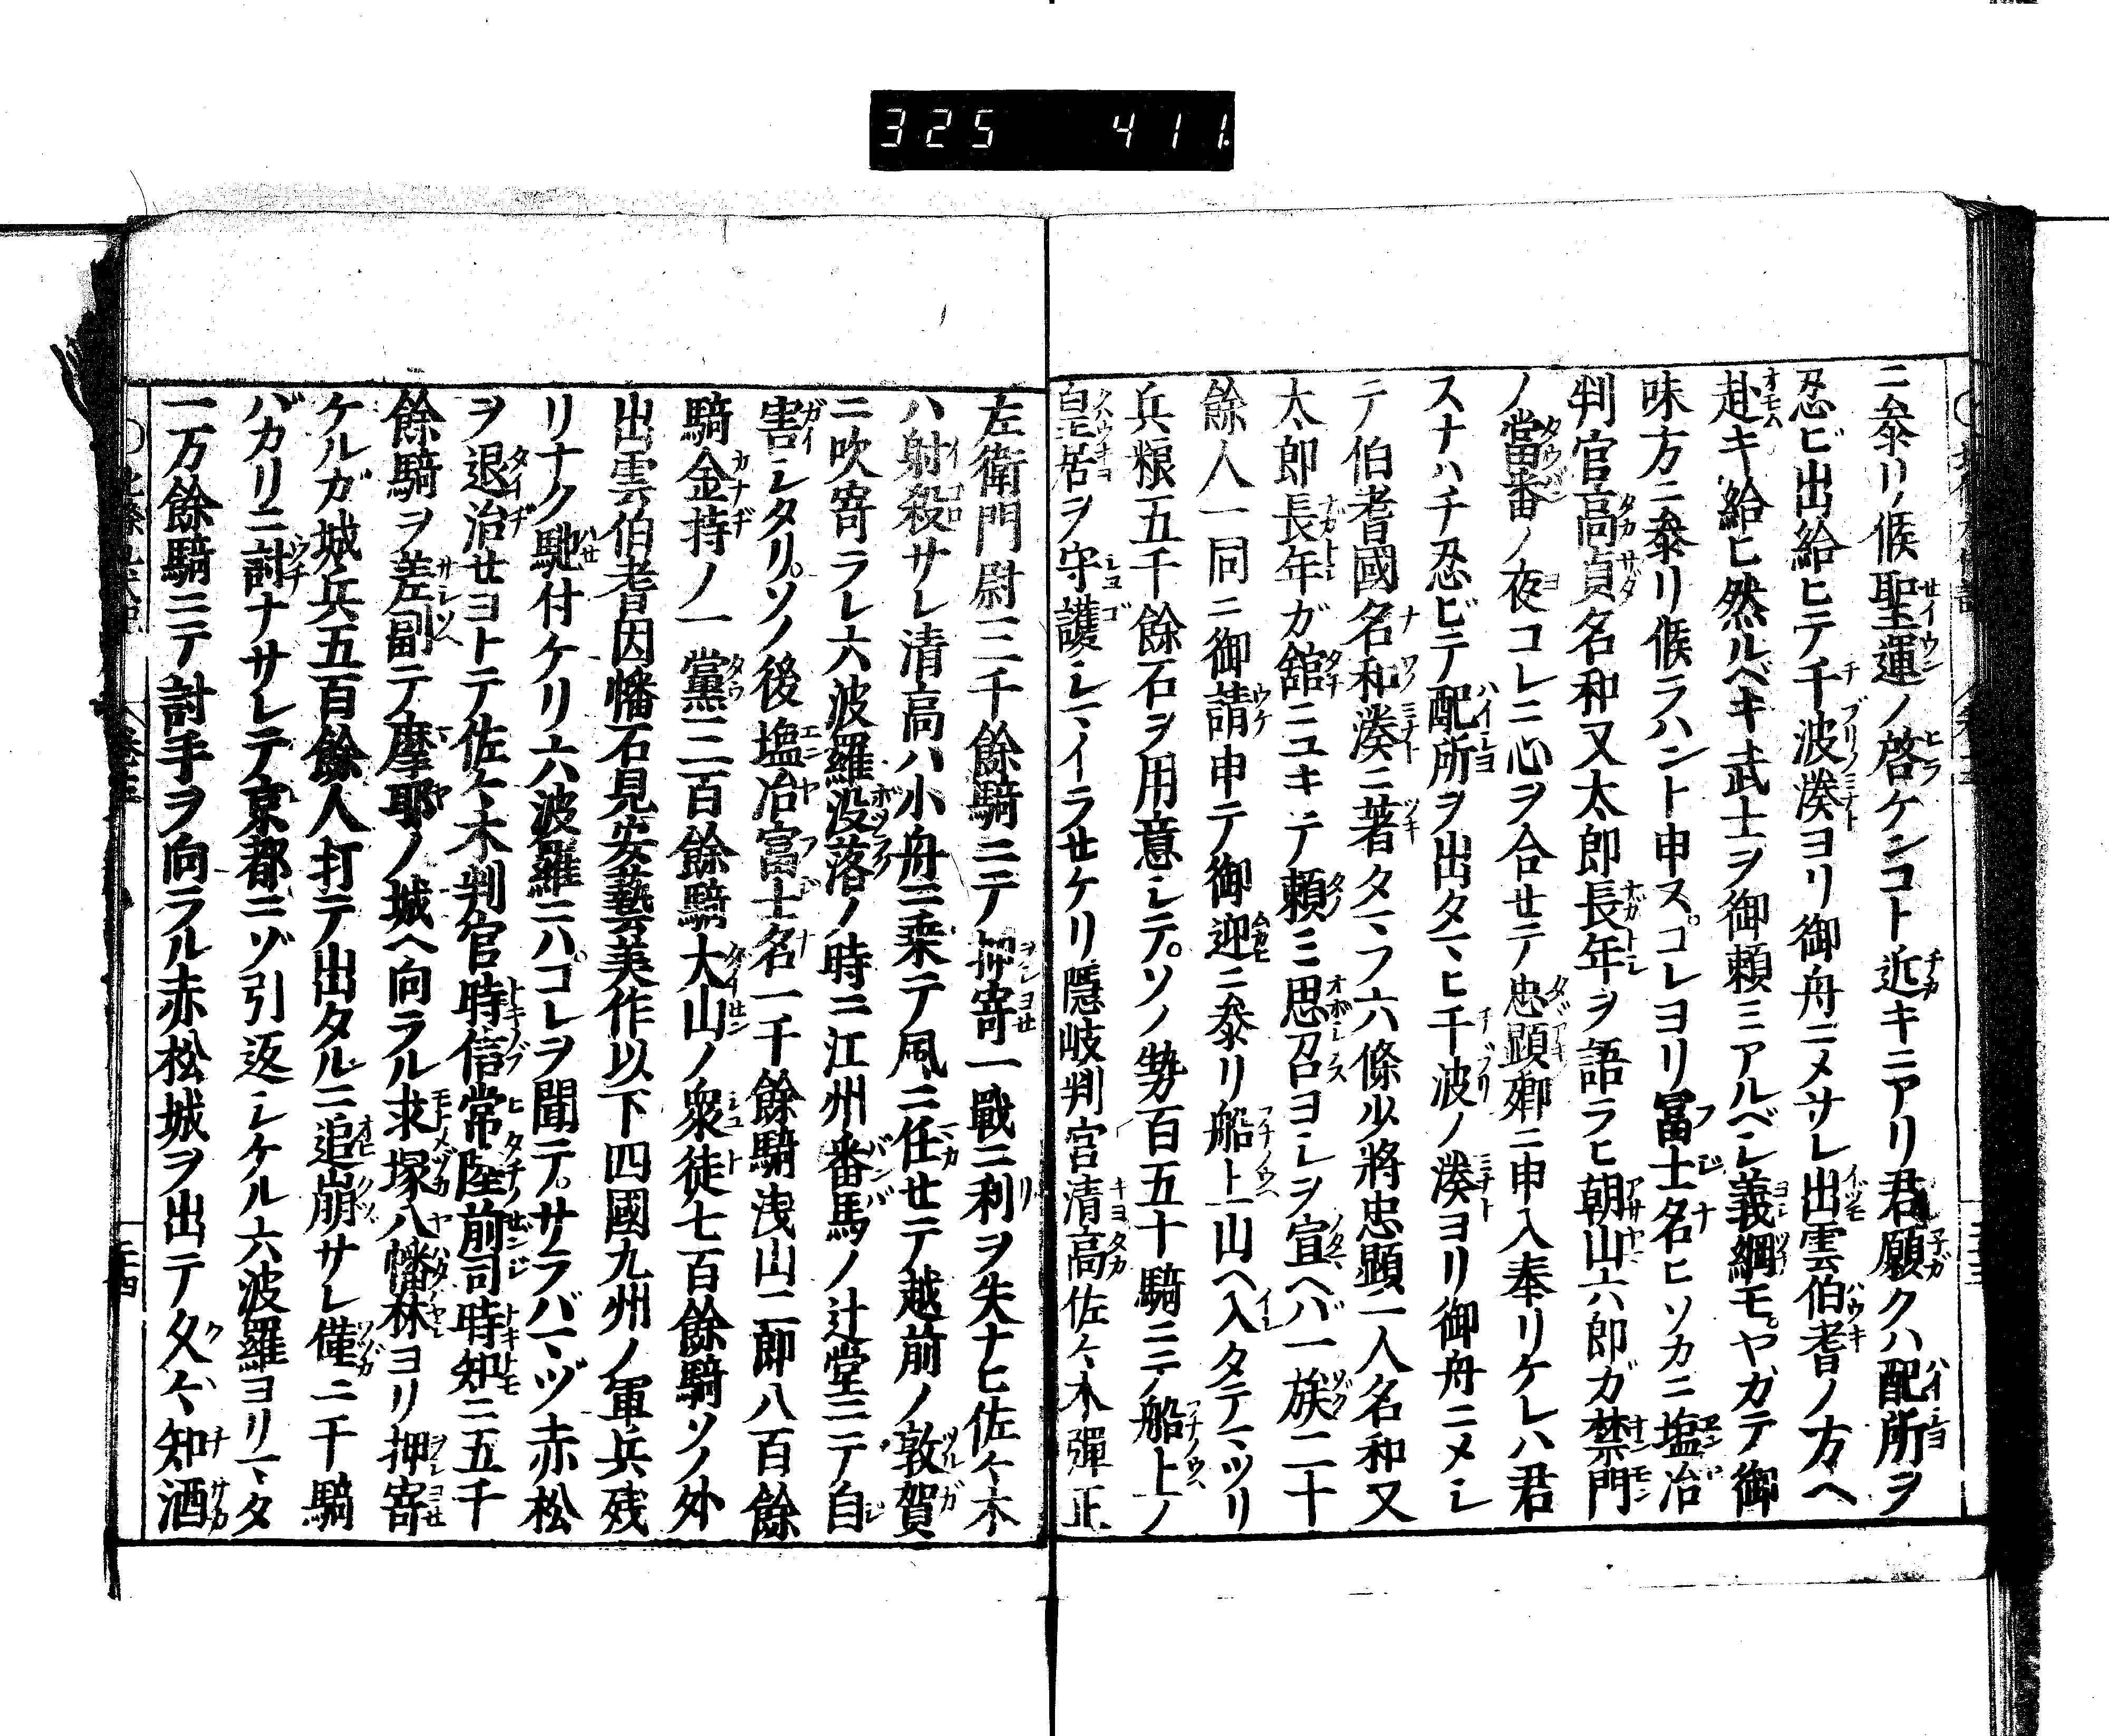 325 411
ニ參リ候聖運ノ啓ケンコト近キニアリ君願クハ配所ヲ
忍ビ出給ヒテ千波湊ヨリ御舟ニメサレ出雲伯耆ノ方ヘ
赴キ給ヒ然ルベキ武士ヲ御頼ミアルベシ義綱モヤガテ御
味方ニ參リ候ラハント申スコレヨリ冨士名ヒソカニ塩冶
判官高貞名和又太郎長年ヲ語ラヒ朝山六郎ガ禁門
ノ當番ノ夜コレニ心ヲ合セテ忠顕卿ニ申入奉リケレハ君
スナハチ忍ビテ配所ヲ出タマヒ千波ノ湊ヨリ御舟ニメシ
テ伯耆國名和湊ニ著タマフ六條少將忠顕一人名和又
太郎長年ガ舘ニユキテ頼ミ思召ヨシヲ宣ヘバ一族二十
餘人一同ニ御請申テ御迎ニ參リ船上山ヘ入タテマツリ
兵粮五千餘石ヲ用意シテソノ勢百五十騎ニテ船上ノ
皇居ヲ守護シマイラセケリ隱岐判官清高佐々木彈正
左衛門尉三千餘騎ニテ押寄一戰ニ利ヲ失ナヒ佐々木
ハ射殺サレ清高ハ小舟ニ乗テ風ニ任セテ越前ノ敦賀
ニ吹寄ラレ六波羅没落ノ時ニ江州番馬ノ辻堂ニテ自
害シタリソノ後塩冶富士名一千餘騎浅山二郎八百餘
騎金持ノ一黨三百餘騎大山ノ衆徒七百餘騎ソノ外
出雲伯耆因幡石見安藝美作以下四國九州ノ軍兵残
リナク馳付ケリ六波羅ニハコレヲ聞テサラバマヅ赤松
ヲ退治セヨトテ佐々木判官時信常陸前司時知ニ五千
餘騎ヲ差副テ摩耶ノ城ヘ向ラル求塚八幡林ヨリ押寄
ケルガ城兵五百餘人打テ出タルニ追崩サレ僅ニ千騎
バカリニ討ナサレテ京都ニゾ引返シケル六波羅ヨリマタ
一万餘騎ニテ討手ヲ向ラル赤松城ヲ出テ久々知酒